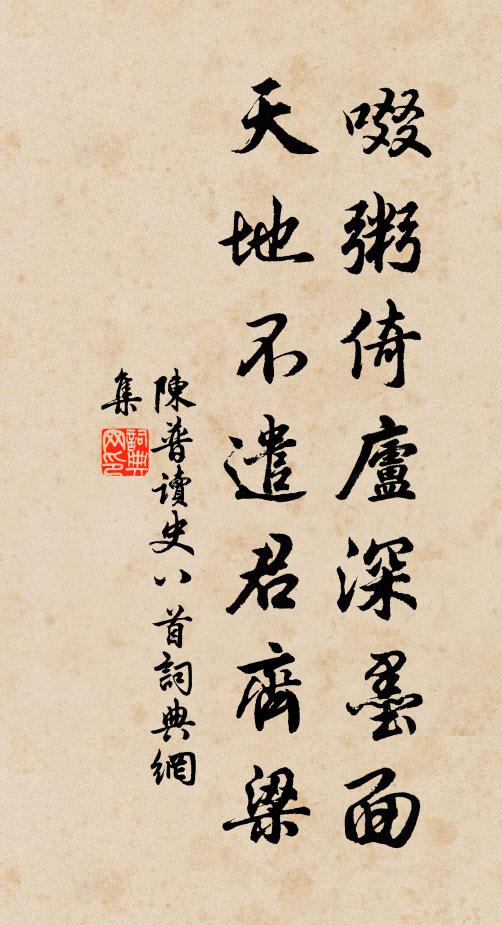 啜粥倚廬深墨面
天地不遣君齊梁
陳普讀史八首詞典網
集
詞典
网印